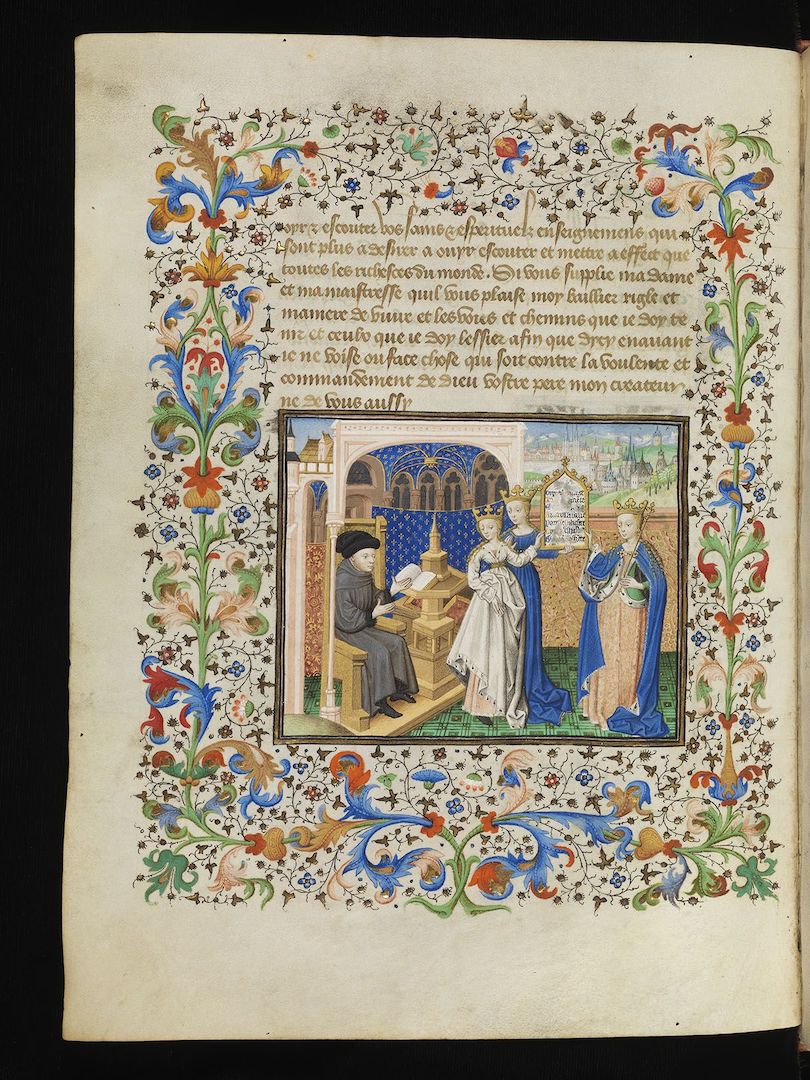 oyr & escouter vos sains & esperituelz enseignemens qui
sont plus a desirer a ouyr escouter et mettre a effect que
toutes les richesces du monde. Si vous supplie ma dame
et ma maistresse quil vous plaise moy baillier rigle et
maniere de vivre et les voies et chemins que ie doy te
nir et ceulx que ie doy lessier afin que dicy en avant
ie ne voise ou face chose qui soit contre la voulente et
commandement de dieu vostre pere mon createur
ne de vous aussy